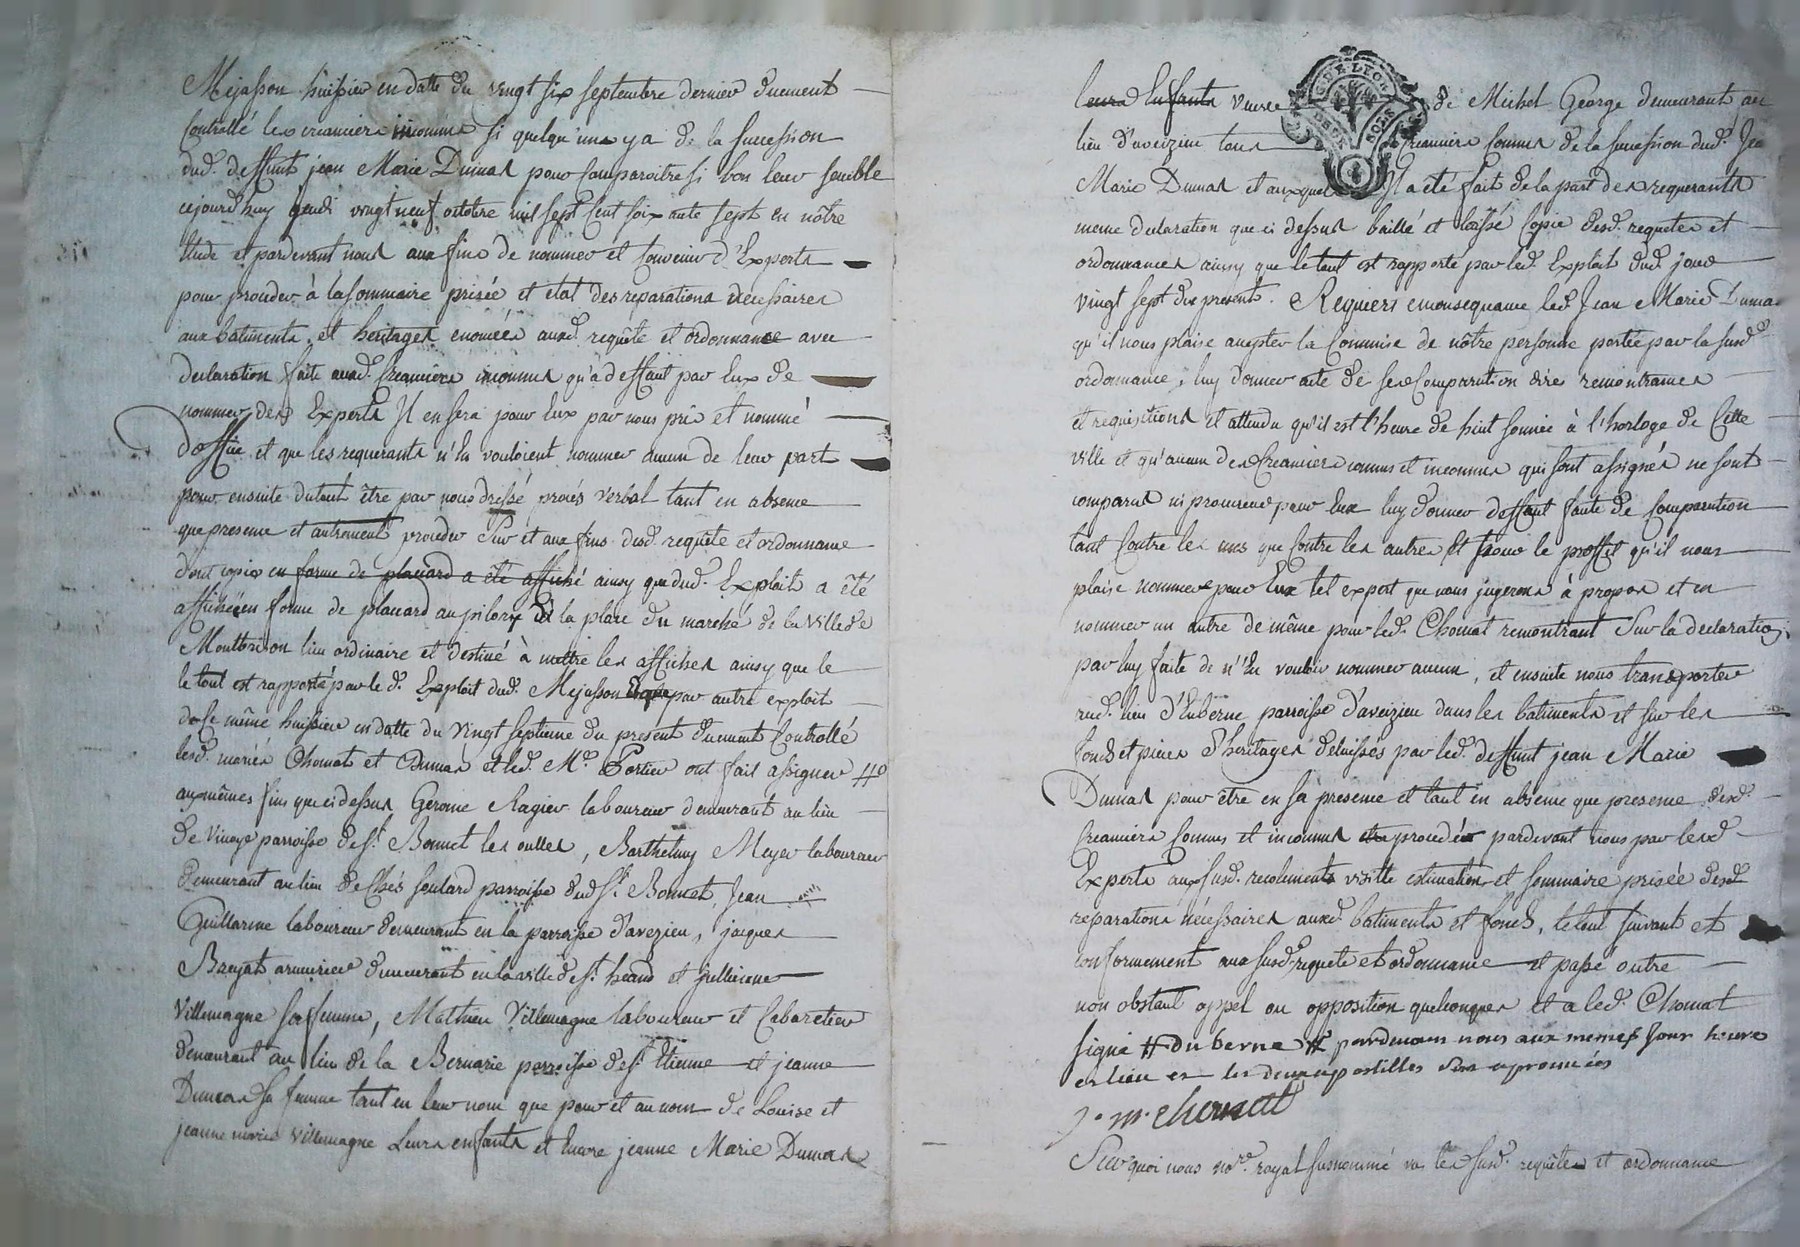 Mejasson huissier en datte du vingt six septembre dernier duement
Controllé les creanciers inconnus si quelqu'uns y a de la succession
dud. deffunt jean Marie Dumas pour Comparoitre si bon leur semble
cejourd'huy jeudi vingt neuf octobre mil sept cent soixante sept en nôtre
Etude et pardevant nous aux fins de nommer et Convenir d'Experts
pour proceder à la sommaire prisée et etat des reparations necessaires
aux batiments et heritages enoncés auxd. requête et ordonnance avec
declaration faite auxd. Creanciers inconnus qu'a deffaut par Eux de
nommer des Experts Il en sera pour Eux par nous pris et nommé
d'office et que les requerants n'En vouloient nommer aucun de leur part
pour ensuite du tout être par nous dressé procés verbal tant en absence
que presence et autrement proceder Sur et aux fins desd. requête et ordonnance
dont copie en forme de placard a été affiché ainsy que dud. Exploit a été
affichée en forme de placard au pilory de la place du marché de la ville de
Montbrison lieu ordinaire et destiné à mettre les affiches ainsy que le
le tout est rapporté par le d. Exploit dud. Mejasson par autre exploit
du même huissier en datte du vingt septieme du present duement Controllé
lesd. mariés Chomat et Dumas et led. Me. Portier ont fait assigner #
aux mêmes fins que ci dessus Gerome Ragier laboureur demeurant au lieu
de Vinoye parroisse de St. Bonnet les oulles, Barthelemy Meyer laboureur
demeurant au lieu de Chés soulard parroisse dud St. Bonnet, Jean
Guillarme laboureur demeurant en la parroisse d'avezieu, jacques
Bayat armurier demeurant en la ville de St. heand et
Villemagne sa femme, Mathieu Villemagne laboureur et Cabaretier
demeurant au lieu de la Bernarie parroisse de St. Etienne et jeanne
Dumas sa femme tant en leur nom que pour et au nom de Louise et
jeanne marie Villemagne Leurs enfants et Encore jeanne Marie Dumas
leurs Enfants veuve de Michel George demeurant au
lieu d'aveizieu tous Creanciers Connus de la succession dud. Jean
Marie Dumas et auxquels Il a été fait de la part des requerants
meme declaration que ci dessus baillé et laissé Copie desd. requetes et
ordonnances ainsy que le tout est rapporté par led. Exploit dud. jour
vingt sept du present. Requiers en consequance led. Jean Marie Dumas
qu'il nous plaise accepter la Commise de nôtre personne portée par la susd.
ordonnance, luy donner acte de ses Comparution dires remontrances
et requisitions et attendu qu'il est l'heure de huit sonnée à l'horloge de Cette
ville et qu'aucun des Creanciers connus et inconnus qui sont assignés ne sont
comparus ni procureur pour Eux luy donner deffaut faute de Comparution
tant Contre les uns que Contre les autres Et pour le proffit qu'il nous
plaise nommer pour Eux tel expert que nous jugerons à propos et en
nommer un autre de même pour led. Chomat remontrant Sur la declaration
par luy faite de n'En vouloir nommer aucun, et ensuite nous transporter
aud. lieu d'Euberne parroisse d'aveizieu dans les batiments et sur les
fonds et pieces d'heritages délaissés par led. deffunt jean Marie
Dumas pour être en sa presence et tant en absence que presence desd.
Creanciers Connus et inconnus procedé pardevant nous par lesd
Experts aux susd. recolements visitte estimation et sommaire prisée desd
reparations nécessaires auxd. batiments et fonds, le tout suivant et
conformement aux susd. requete et ordonnance et passé outre
non obstant appel ou opposition quelconques et a led. Chomat
signé # duberne # pardevan nous aux memes jour heure
et lieu et les deux apostilles sus aprouvées
j. m. chomat
Sur quoi nous nore. royal susnommé vu les susd. requêtes et ordonnance
G. DE LYON
DEUX SOLS